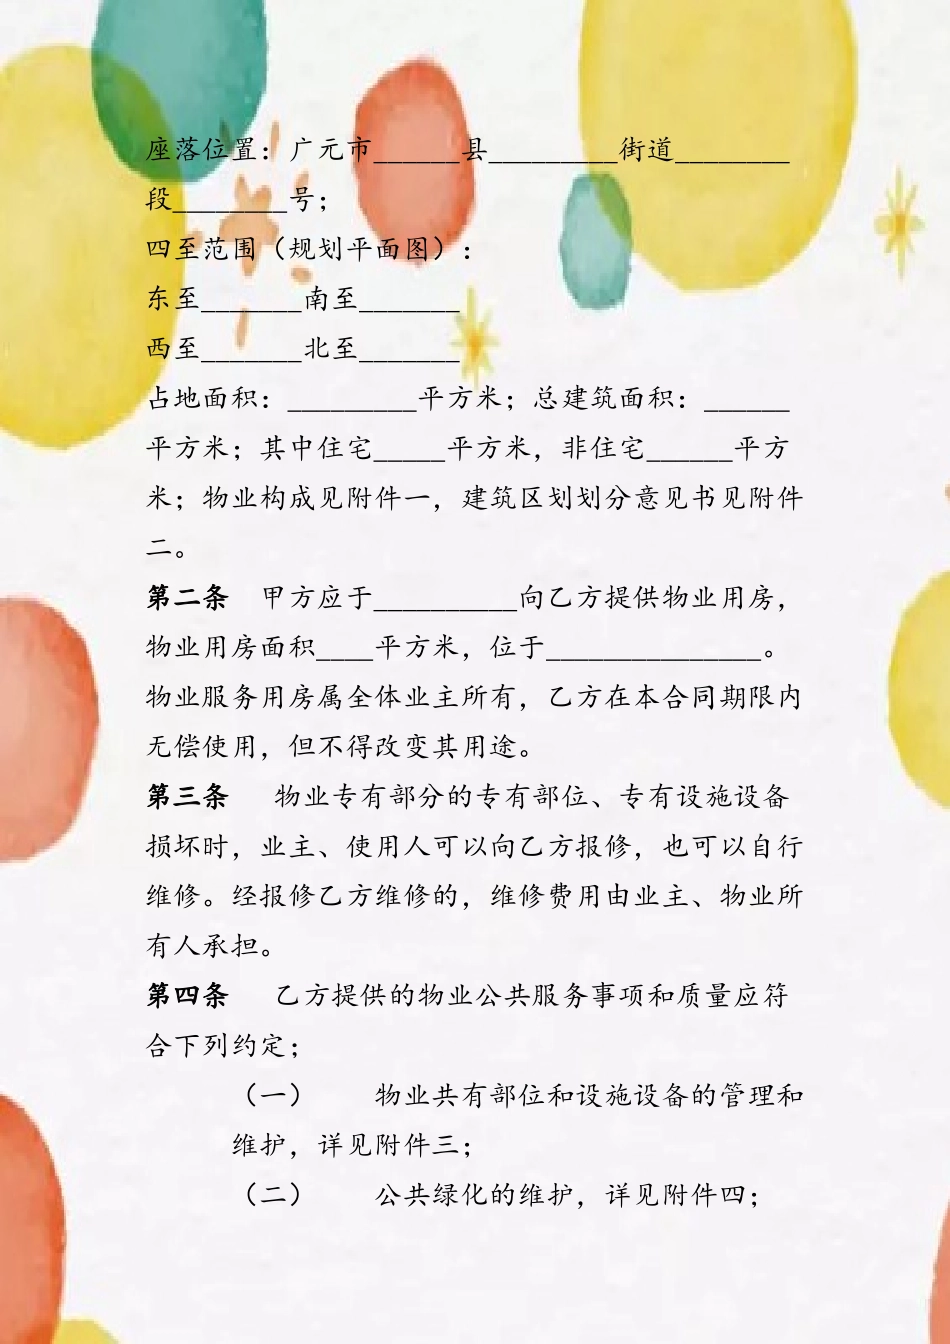 座落位置：广元市______县_________街道________
段________号；
四至范围（规划平面图）：
东至_______南至_______
西至_______北至_______
占地面积：_________平方米；总建筑面积：______
平方米；其中住宅_____平方米，非住宅______平方
米；物业构成见附件一，建筑区划划分意见书见附件
二。
第二条　甲方应于__________向乙方提供物业用房，
物业用房面积____平方米，位于_______________。
物业服务用房属全体业主所有，乙方在本合同期限内
无偿使用，但不得改变其用途。
第三条　 物业专有部分的专有部位、专有设施设备
损坏时，业主、使用人可以向乙方报修，也可以自行
维修。经报修乙方维修的，维修费用由业主、物业所
有人承担。
第四条　 乙方提供的物业公共服务事项和质量应符
合下列约定；
（一）　　物业共有部位和设施设备的管理和
维护，详见附件三；
（二）　　公共绿化的维护，详见附件四；